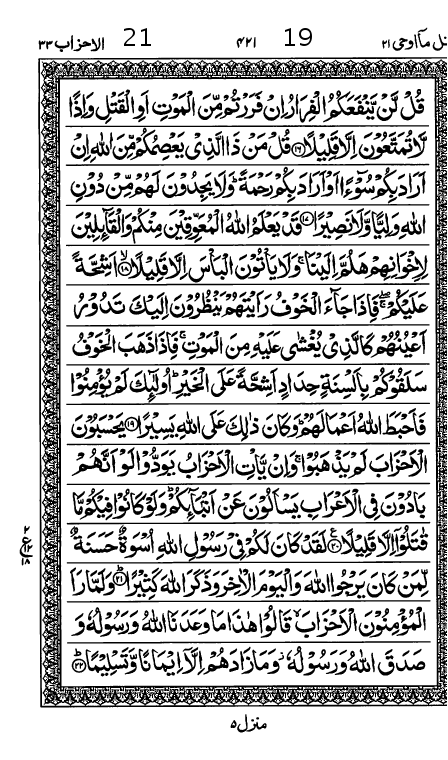 الاحزاب ٣٣ 21 ٤٢١ 19 اتل مآ اوحی ٢١
قُلْ لَّنْ يَّنْفَعَكُمُ الْفِرَارُ اِنْ فَرَرْتُمْ مِّنَ الْمَوْتِ اَوِ الْقَتْلِ وَاِذًا
لَّا تُمَتَّعُوْنَ اِلَّا قَلِيْلًا ﴿١٦﴾ قُلْ مَنْ ذَا الَّذِيْ يَعْصِمُكُمْ مِّنَ اللّٰهِ اِنْ
اَرَادَ بِكُمْ سُوْٓءًا اَوْ اَرَادَ بِكُمْ رَحْمَةً ؕ وَلَا يَجِدُوْنَ لَهُمْ مِّنْ دُوْنِ
اللّٰهِ وَلِيًّا وَّلَا نَصِيْرًا ﴿١٧﴾ قَدْ يَعْلَمُ اللّٰهُ الْمُعَوِّقِيْنَ مِنْكُمْ وَالْقَآئِلِيْنَ
لِاِخْوَانِهِمْ هَلُمَّ اِلَيْنَا ۚ وَلَا يَاْتُوْنَ الْبَاْسَ اِلَّا قَلِيْلًا ﴿١٨﴾ اَشِحَّةً
عَلَيْكُمْ ۚۖ فَاِذَا جَآءَ الْخَوْفُ رَاَيْتَهُمْ يَنْظُرُوْنَ اِلَيْكَ تَدُوْرُ
اَعْيُنُهُمْ كَالَّذِيْ يُغْشٰى عَلَيْهِ مِنَ الْمَوْتِ ۚ فَاِذَا ذَهَبَ الْخَوْفُ
سَلَقُوْكُمْ بِاَلْسِنَةٍ حِدَادٍ اَشِحَّةً عَلَى الْخَيْرِ ؕ اُولٰٓئِكَ لَمْ يُؤْمِنُوْا
فَاَحْبَطَ اللّٰهُ اَعْمَالَهُمْ ؕ وَكَانَ ذٰلِكَ عَلَى اللّٰهِ يَسِيْرًا ﴿١٩﴾ يَحْسَبُوْنَ
الْاَحْزَابَ لَمْ يَذْهَبُوْا ۚ وَاِنْ يَّاْتِ الْاَحْزَابُ يَوَدُّوْا لَوْ اَنَّهُمْ
بَادُوْنَ فِى الْاَعْرَابِ يَسْاَلُوْنَ عَنْ اَنْۢبَآئِكُمْ ؕ وَلَوْ كَانُوْا فِيْكُمْ مَّا
قٰتَلُوْۤا اِلَّا قَلِيْلًا ﴿٢٠﴾ ع لَقَدْ كَانَ لَكُمْ فِيْ رَسُوْلِ اللّٰهِ اُسْوَةٌ حَسَنَةٌ
لِّمَنْ كَانَ يَرْجُوا اللّٰهَ وَالْيَوْمَ الْاٰخِرَ وَذَكَرَ اللّٰهَ كَثِيْرًا ﴿٢١﴾ ؕ وَلَمَّا رَاَ
الْمُؤْمِنُوْنَ الْاَحْزَابَ ۙ قَالُوْا هٰذَا مَا وَعَدَنَا اللّٰهُ وَرَسُوْلُهٗ وَ
صَدَقَ اللّٰهُ وَرَسُوْلُهٗ ؗ وَمَا زَادَهُمْ اِلَّاۤ اِيْمَانًا وَّتَسْلِيْمًا ﴿٢٢﴾ ؕ
٢
ع ١٢
١٨
منزل ٥